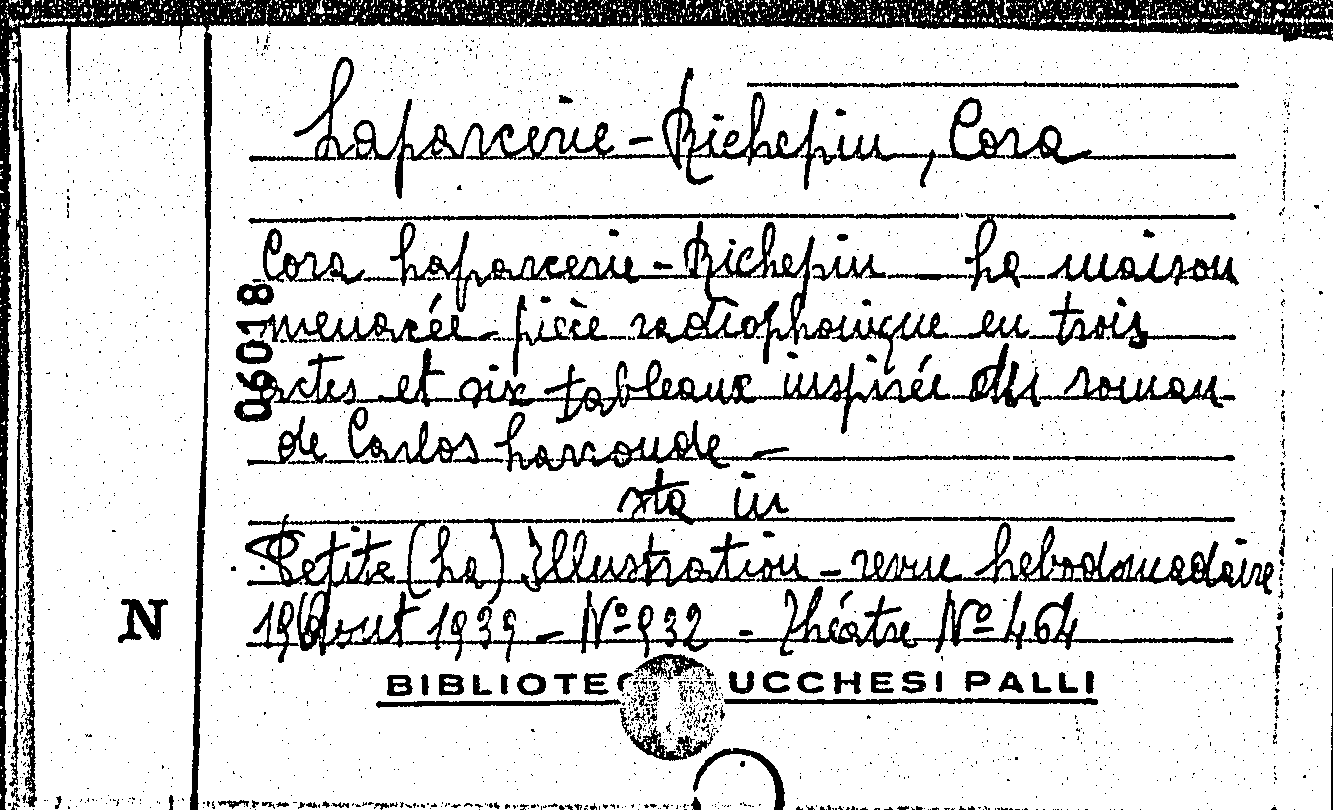 Laparcerie-Richepin, Cora
Cora Laparcerie-Richepin - La maison
menacée - pièce radiophonique en trois
actes et six tableaux inspirée du roman
de Carlos Larronde -
sta in
Petite (La) Illustration - revue hebdomadaire
19 Aout 1939 - Nº 932 - Théatre Nº 464
06018
N
BIBLIOTEC UCCHESI PALLI